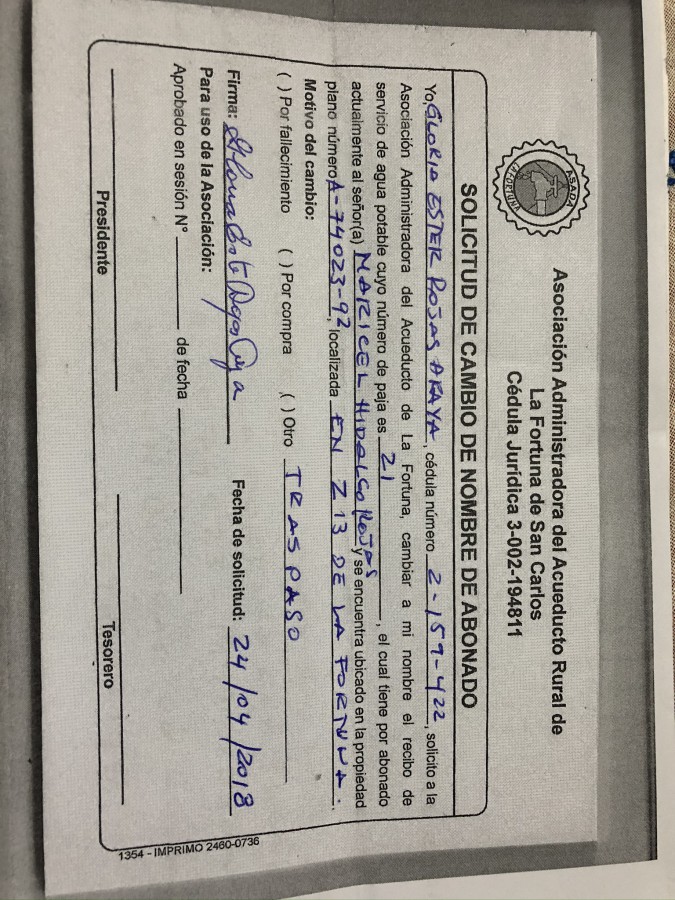 ASADA
LA FORTUNA
Asociación Administradora del Acueducto Rural de
La Fortuna de San Carlos
Cédula Jurídica 3-002-194811
SOLICITUD DE CAMBIO DE NOMBRE DE ABONADO
Yo, GLORIA ESTER ROJAS ARAYA, cédula número 2-159-422, solicito a la
Asociación Administradora del Acueducto de La Fortuna, cambiar a mi nombre el recibo de
servicio de agua potable cuyo número de paja es 21, el cual tiene por abonado
actualmente al señor(a) MARICEL HIDALGO ROJAS y se encuentra ubicado en la propiedad
plano número A-74023-92, localizada EN Z 13 DE LA FORTUNA.
Motivo del cambio:
( ) Por fallecimiento ( ) Por compra ( ) Otro TRASPASO
Firma: Fecha de solicitud: 24/04/2018
Para uso de la Asociación:
Aprobado en sesión N° de fecha
Presidente Tesorero
1354 - IMPRIMO 2460-0736